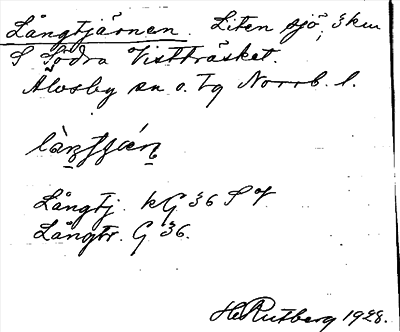 Långtjärnen. Liten sjö, 3 km
S Södra Vistträsket.
Älvsby sn o. Tg Norrb. l.
Långtj. kG 36 S V
Långtr. G 36.
H Rutberg 1928.